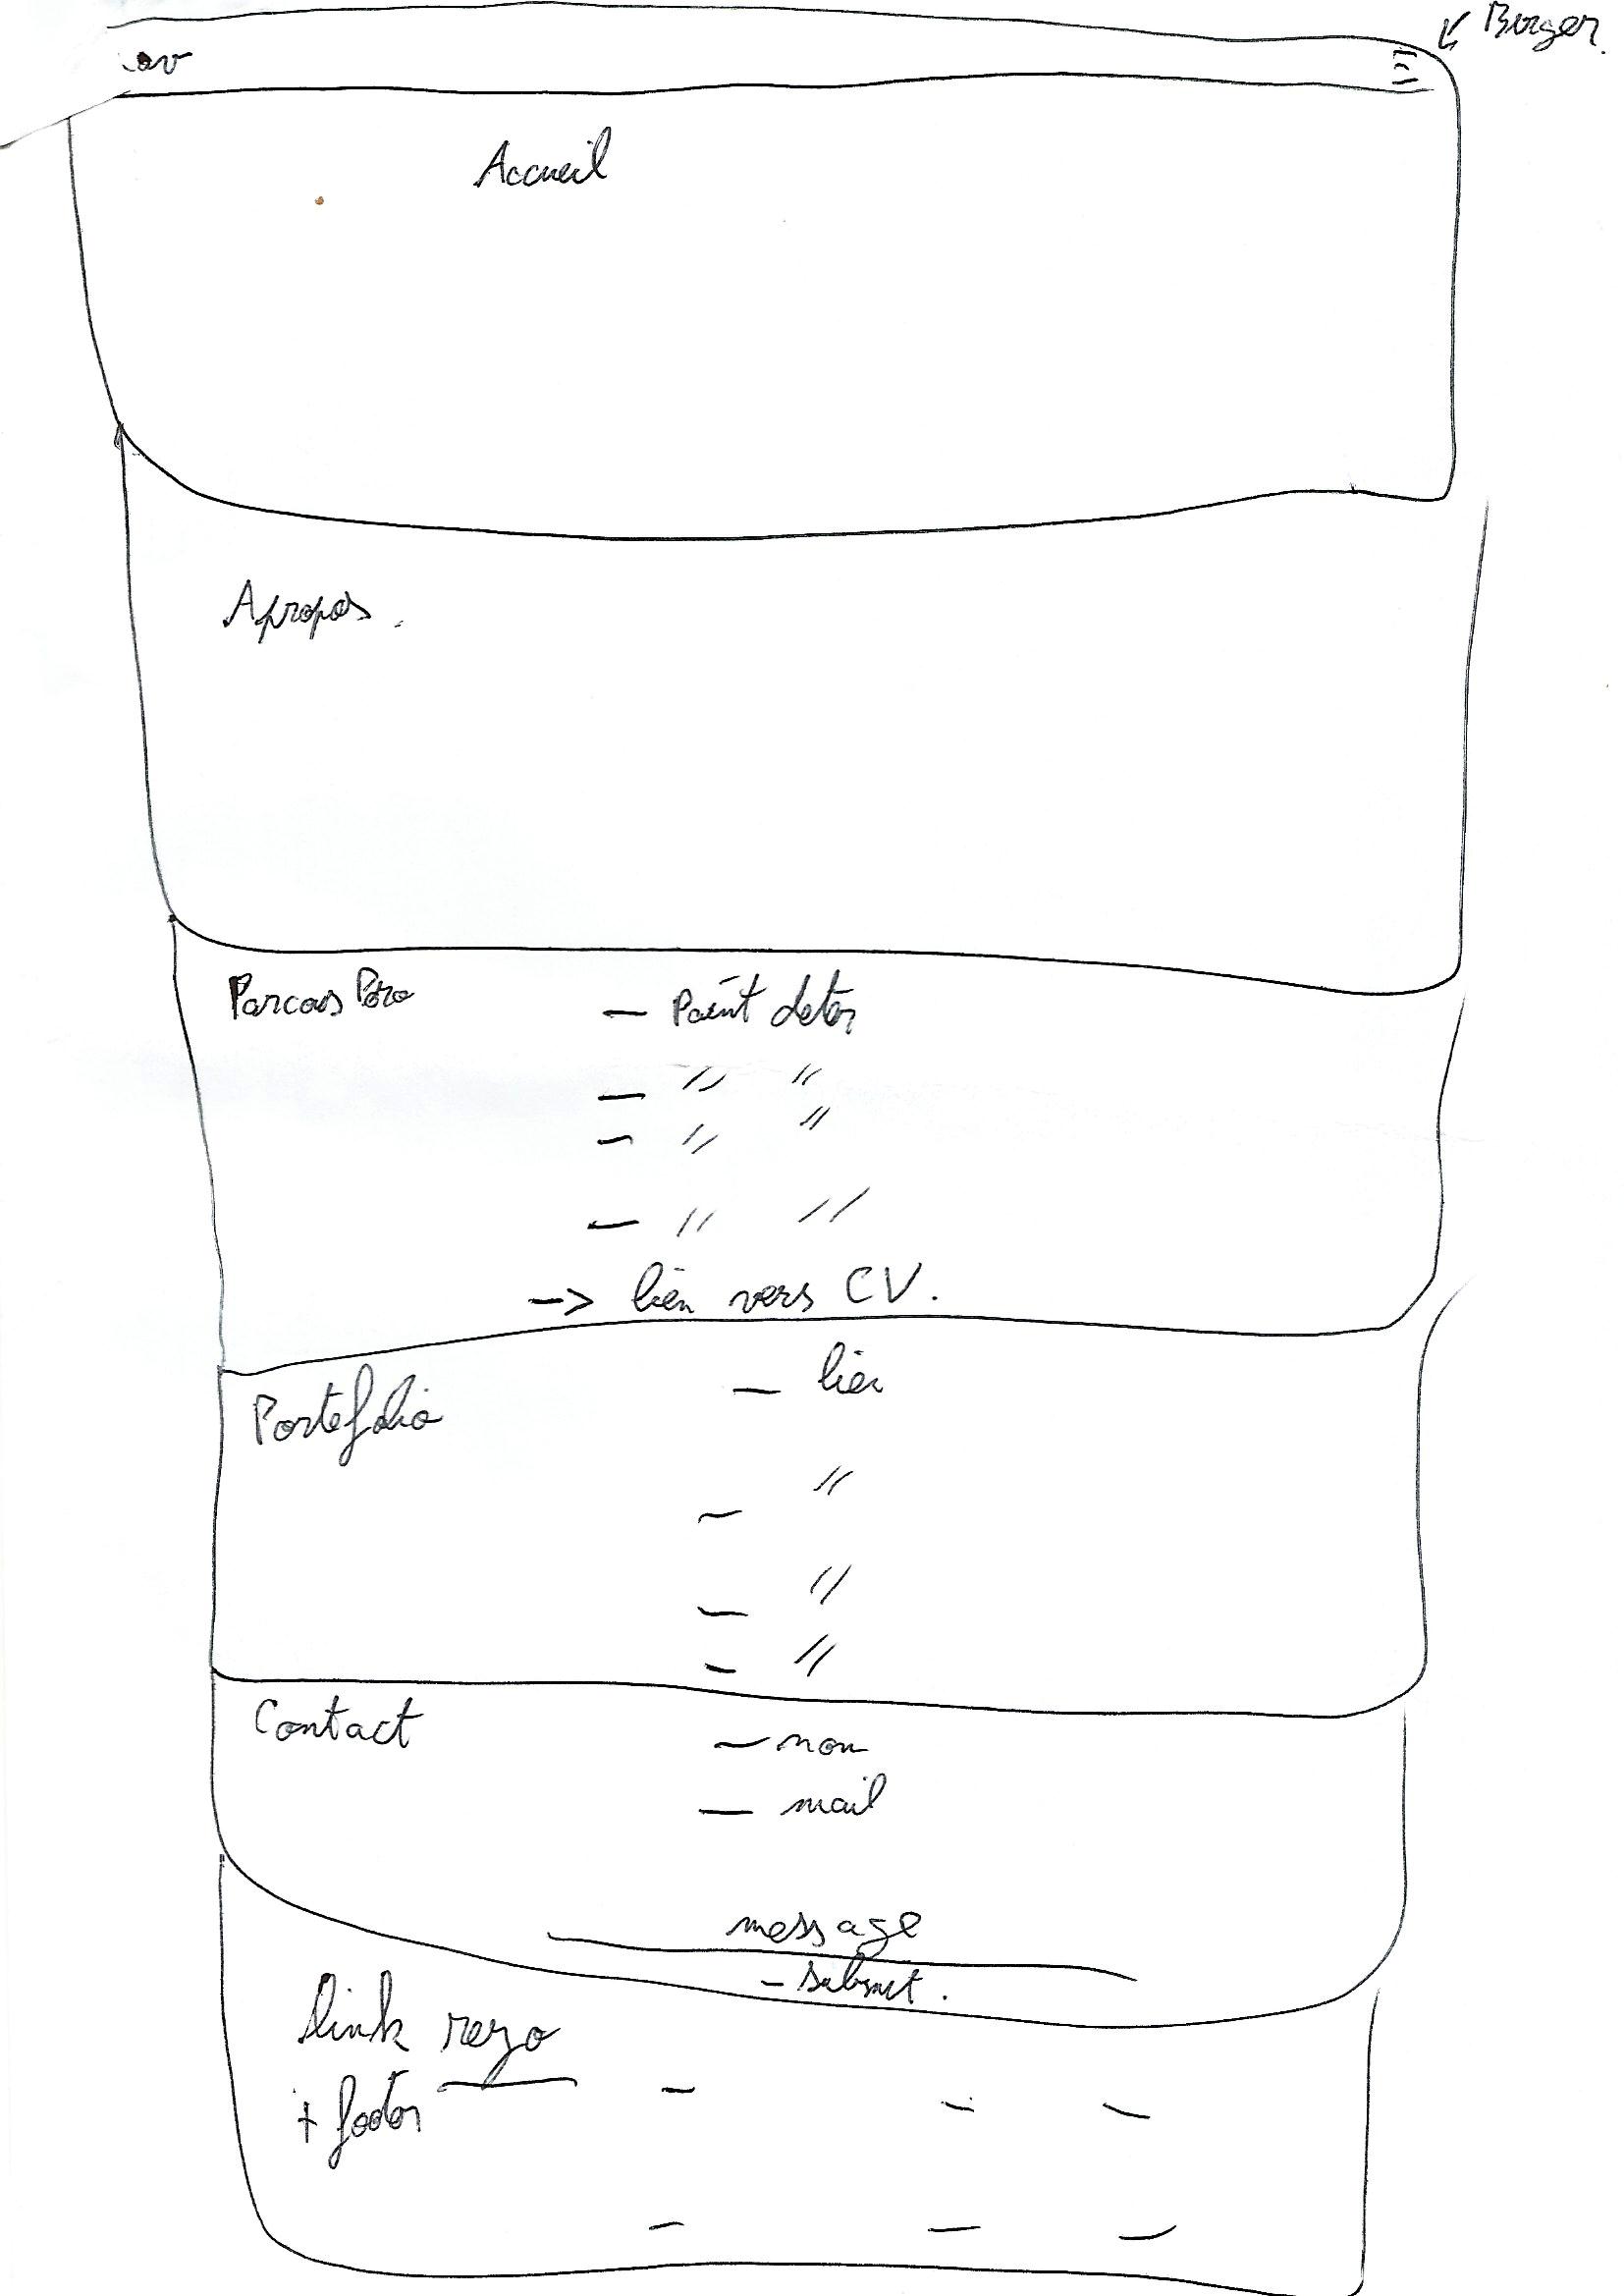 Burger.
Accueil
Apropos.
Parcours Pro
— Point deter
— " "
— " "
— " "
-> lien vers CV.
Portefolio
— lien
— "
— "
— "
Contact
— nom
— mail
message
- submit.
link rezo
+ footer